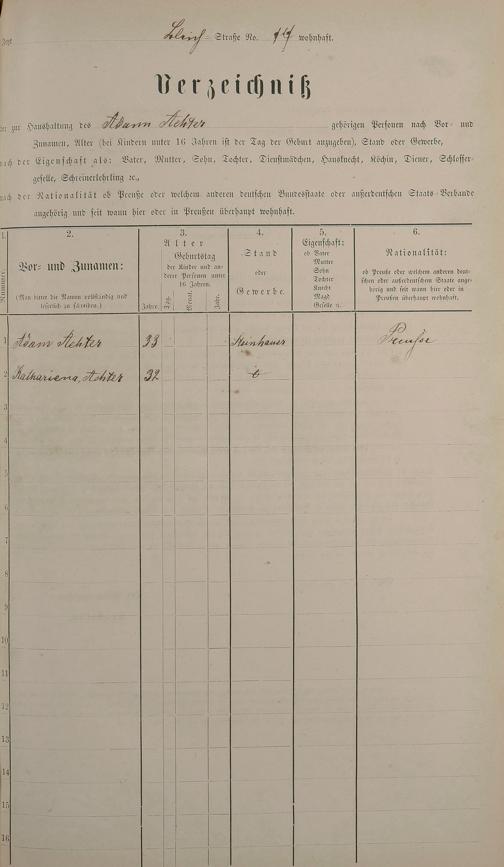 Bleich-Straße No. wohnhaft.
Verzeichniß
der zur Haushaltung des Adam Achter gehörigen Personen nach Vor- und
Zunamen, Alter (bei Kindern unter 16 Jahren ist der Tag der Geburt anzugeben), Stand oder Gewerbe,
nach der Eigenschaft als: Vater, Mutter, Sohn, Tochter, Dienstmädchen, Hausknecht, Köchin, Diener, Schlosser-
geselle, Schreinerlehrling ꝛc.,
nach der Nationalität ob Preuße oder welchem anderen deutschen Bundesstaate oder außerdeutschen Staats-Verbande
angehörig und seit wann hier oder in Preußen überhaupt wohnhaft.
1.
Nummer.
2.
Vor- und Zunamen:
(Man bittet die Namen vollständig und
leserlich zu schreiben.)
3.
Alter
Geburtstag
der Kinder und an-
derer Personen unter
16 Jahren.
Jahre. Tag. Monat. Jahr.
4.
Stand
oder
Gewerbe.
5.
Eigenschaft:
ob Vater
Mutter
Sohn
Tochter
Knecht
Magd
Geselle ꝛc.
6.
Nationalität:
ob Preuße oder welchem anderen deut-
schen oder außerdeutschen Staate ange-
hörig und seit wann hier oder in
Preußen überhaupt wohnhaft.
1 Adam Achter 33 Steinhauer Preuße
2 Kathariena Achter 32
3
4
5
6
7
8
9
10
11
12
13
14
15
16